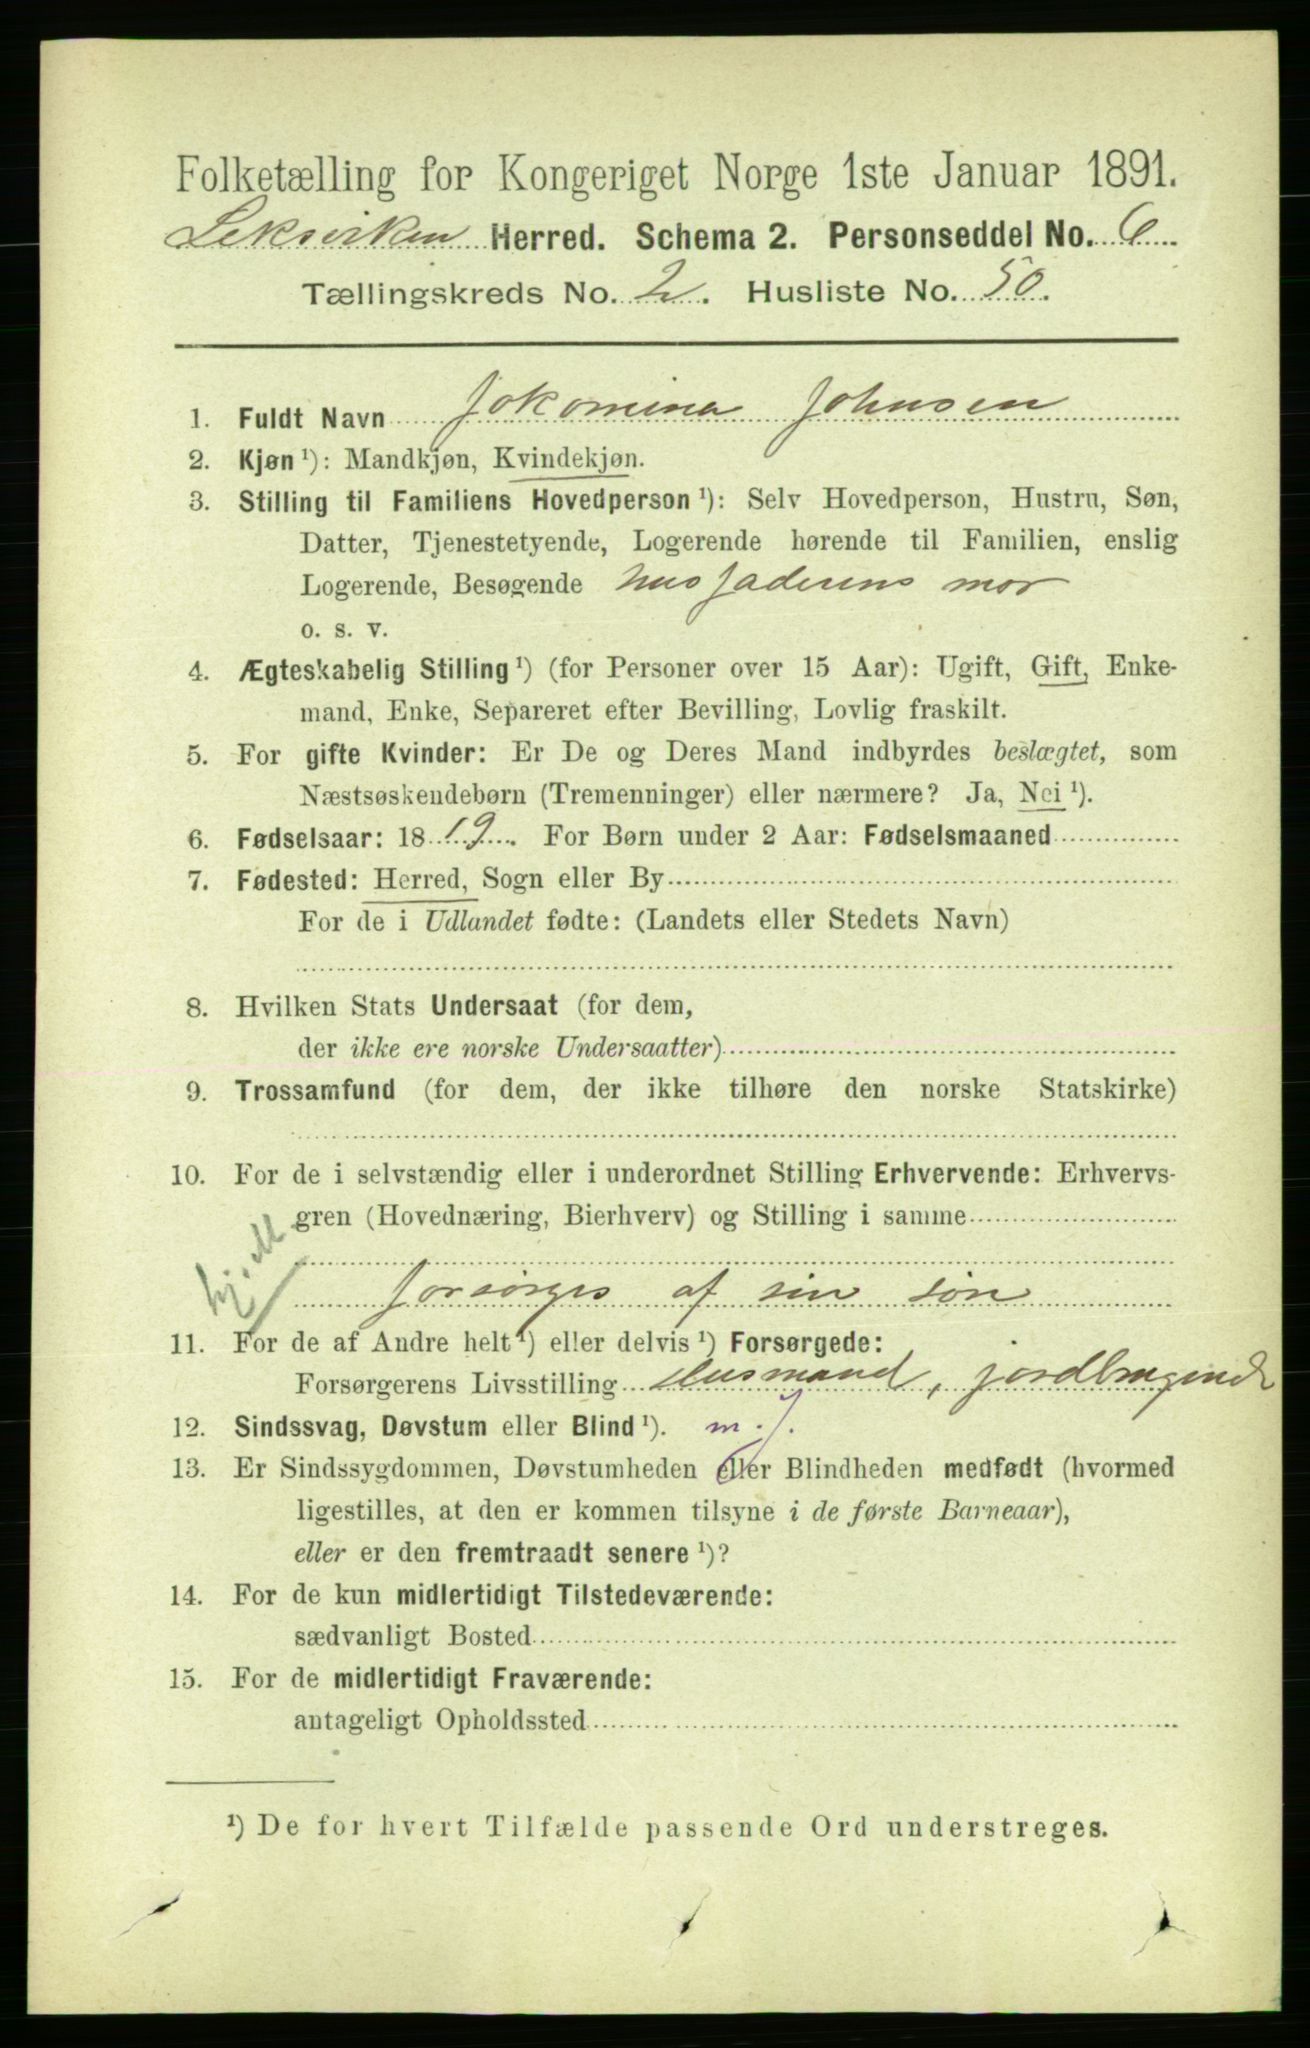 Folketælling for Kongeriget Norge 1ste Januar 1891.
Leksviken Herred. Schema 2. Personseddel No. 6
Tællingskreds No. 2. Husliste No. 50.
1. Fuldt Navn Jokomina Johnsen
2. Kjøn ¹): Mandkjøn, Kvindekjøn.
3. Stilling til Familiens Hovedperson ¹): Selv Hovedperson, Hustru, Søn,
Datter, Tjenestetyende, Logerende hørende til Familien, enslig
Logerende, Besøgende husfaderens mor
o. s. v.
4. Ægteskabelig Stilling ¹) (for Personer over 15 Aar): Ugift, Gift, Enke-
mand, Enke, Separeret efter Bevilling, Lovlig fraskilt.
5. For gifte Kvinder: Er De og Deres Mand indbyrdes beslægtet, som
Næstsøskendebørn (Tremenninger) eller nærmere? Ja, Nei ¹).
6. Fødselsaar: 1819. For Børn under 2 Aar: Fødselsmaaned
7. Fødested: Herred, Sogn eller By
For de i Udlandet fødte: (Landets eller Stedets Navn)
8. Hvilken Stats Undersaat (for dem,
der ikke ere norske Undersaatter)
9. Trossamfund (for dem, der ikke tilhøre den norske Statskirke)
10. For de i selvstændig eller i underordnet Stilling Erhvervende: Erhvervs-
gren (Hovednæring, Bierhverv) og Stilling i samme
forsørges af sin søn
11. For de af Andre helt ¹) eller delvis ¹) Forsørgede:
Forsørgerens Livsstilling Husmand, jordbrugende
12. Sindssvag, Døvstum eller Blind ¹). m.j.
13. Er Sindssygdommen, Døvstumheden eller Blindheden medfødt (hvormed
ligestilles, at den er kommen tilsyne i de første Barneaar),
eller er den fremtraadt senere ¹)?
14. For de kun midlertidigt Tilstedeværende:
sædvanligt Bosted
15. For de midlertidigt Fraværende:
antageligt Opholdssted
¹) De for hvert Tilfælde passende Ord understreges.